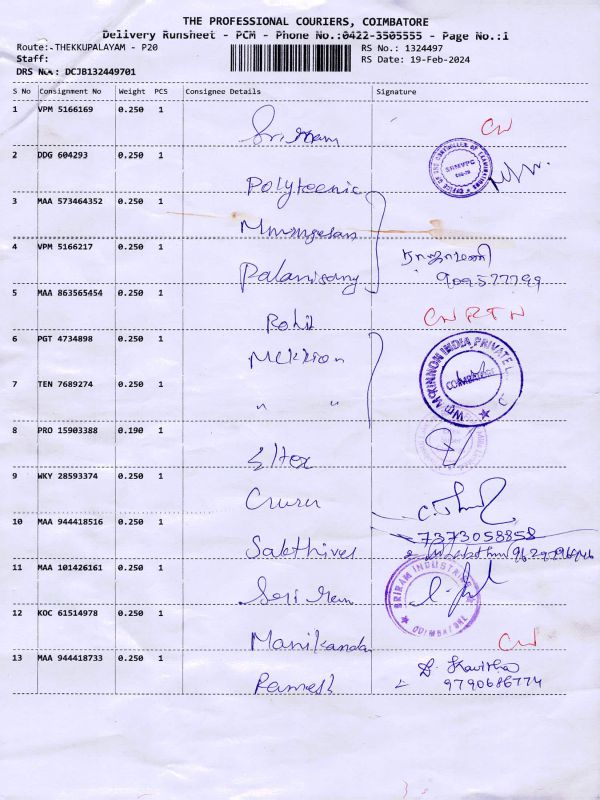 THE PROFESSIONAL COURIERS, COIMBATORE
Delivery Runsheet - PCM - Phone No.:0422-3505555 - Page No.:1
Route:-THEKKUPALAYAM - P20 RS No.: 1324497
Staff: RS Date: 19-Feb-2024
DRS No.: DCJB132449701
S No Consignment No Weight PCS Consignee Details Signature
1 VPM 5166169 0.250 1
Sriram CN
2 DDG 604293 0.250 1
OFFICE OF THE CONTROLLER OF EXAMINATIONS
SRMVPC
Polyteenic
3 MAA 573464352 0.250 1
4 VPM 5166217 0.250 1
ராஜாமணி
Palanisamy
5 MAA 863565454 0.250 1
Rohit CN RTN
6 PGT 4734898 0.250 1
MCKINNON INDIA PRIVATE L
COIMBATORE
7 TEN 7689274 0.250 1
" "
8 PRO 15903388 0.190 1
Eltex
9 WKY 28593374 0.250 1
Guru
10 MAA 944418516 0.250 1
7373058858
Sakthivel
11 MAA 101426161 0.250 1
SRIRAM INDUSTRIES
COIMBATORE
Sri Ram
12 KOC 61514978 0.250 1
Manikandan CN
13 MAA 944418733 0.250 1
Ramesh 9790686774